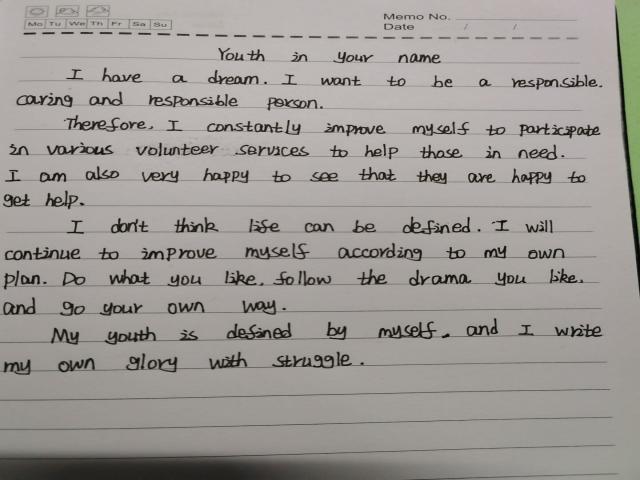 Mo Tu We Th Fr Sa Su
Memo No.
Date / /
Youth in your name
I have a dream. I want to be a responsible.
caring and responsible person.
Therefore, I constantly improve myself to participate
in various volunteer services to help those in need.
I am also very happy to see that they are happy to
get help.
I don't think life can be defined. I will
continue to improve myself according to my own
plan. Do what you like, follow the drama you like,
and go your own way.
My youth is defined by myself, and I write
my own glory with struggle.